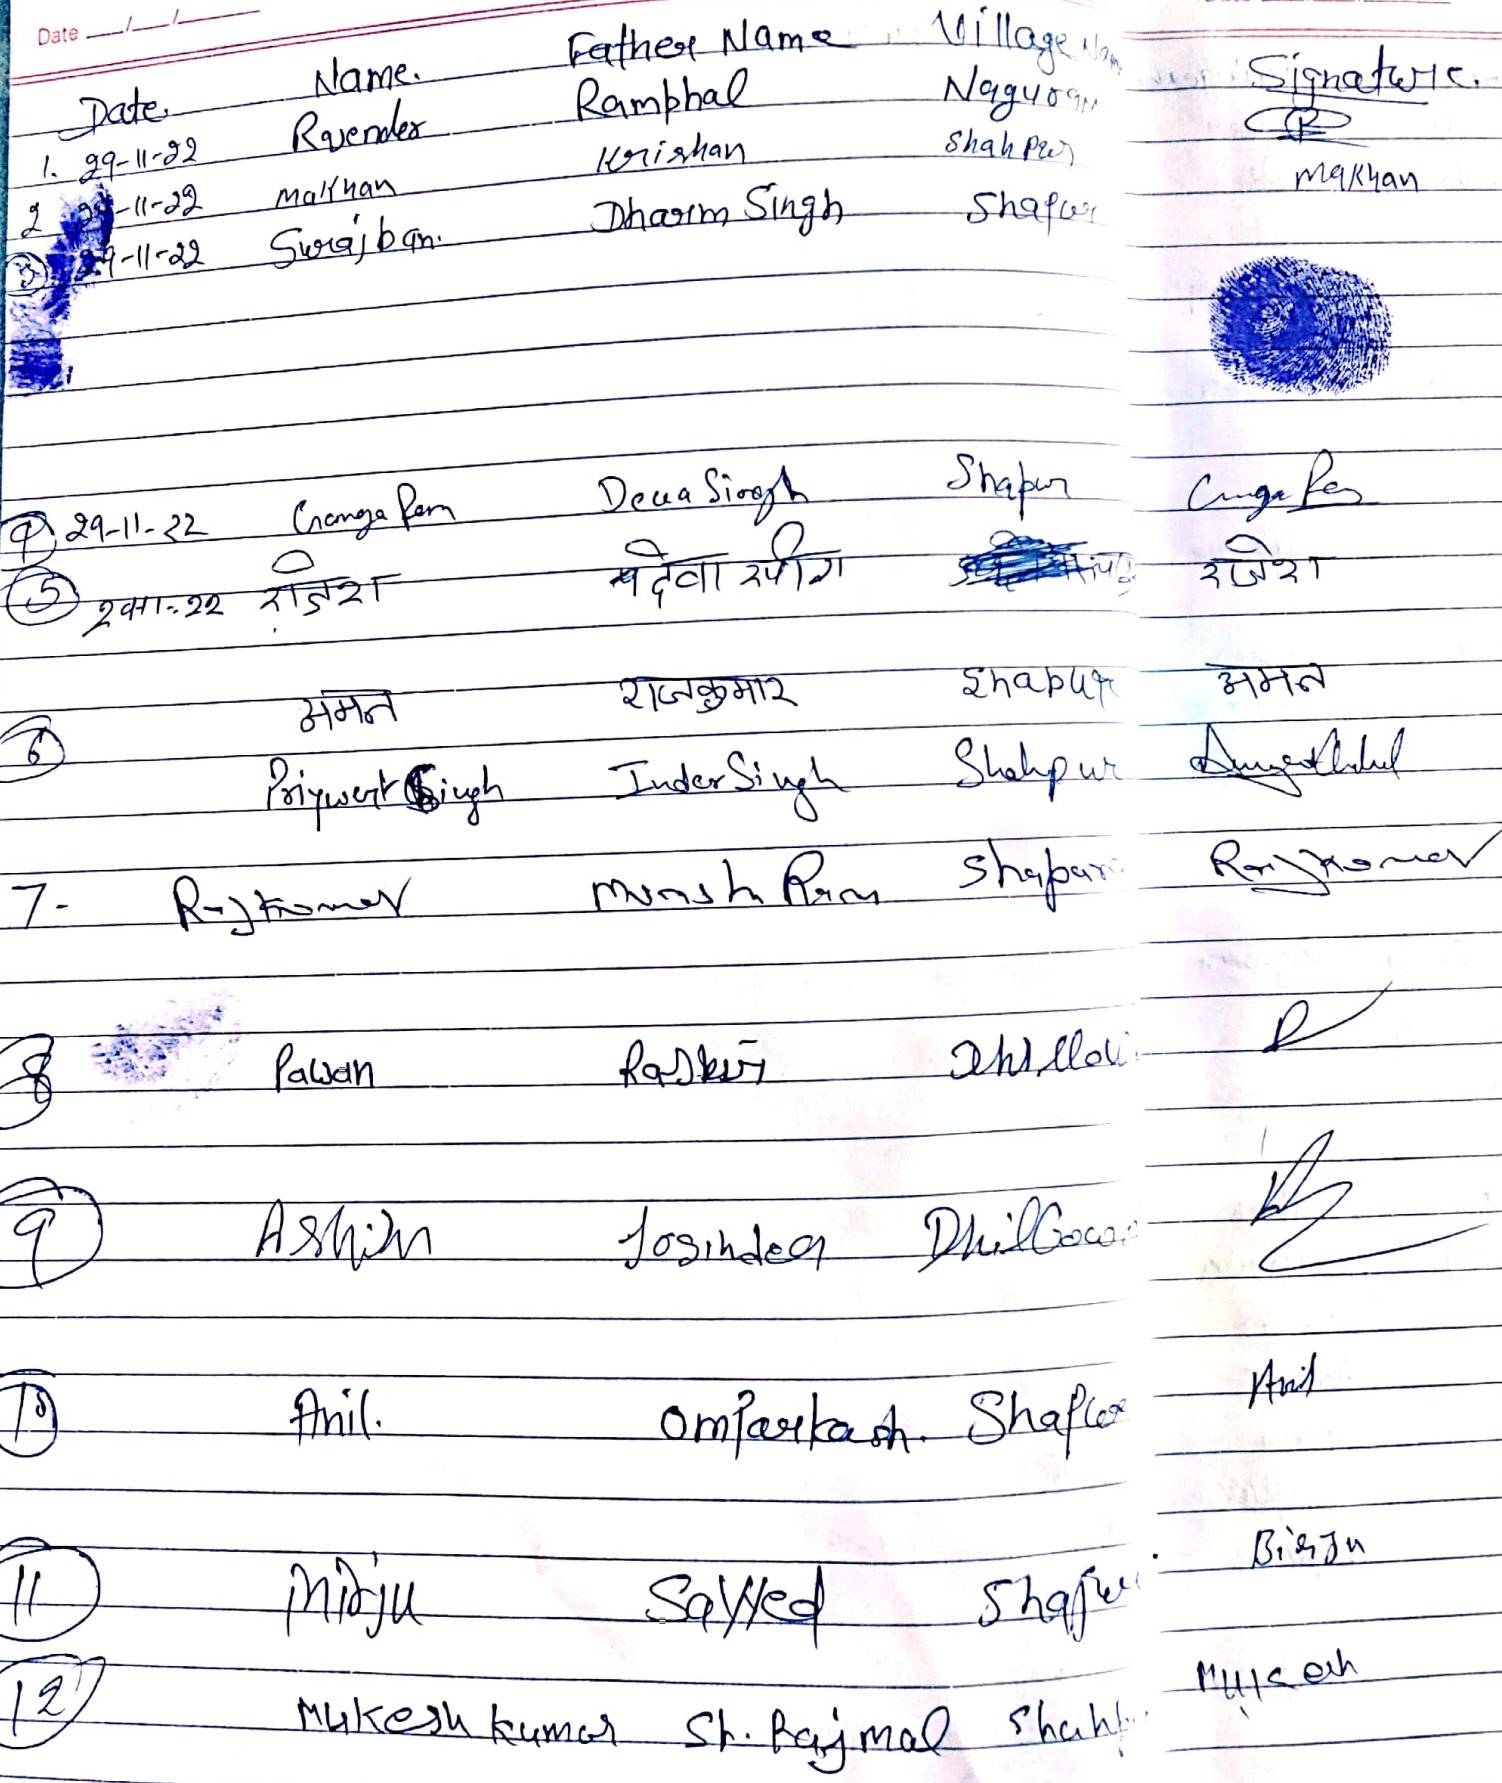 Date __/__/__
Date. Name. Father Name Village Name Signature.
1. 29-11-22 Ravender Ramphal Naguran
2 29-11-22 Makhan Krishan Shahpur Makhan
3 29-11-22 Surajban. Dharm Singh Shapur
4 29-11-22 Ganga Ram Deva Singh Shapur Ganga Ram
5 29-11-22 राजेश देवा सींग राजेश
6 अमन राजकुमार Shapur अमन
Priywert Singh Inder Singh Shahpur
7- Rajkumar Munsh Ram Shapur Rajkumar
8 Pawan Rajbir
9 Ashim Joginder
10 Anil. Omparkash. Shapur Anil
11 Sayyed Shapur
12 Mukesh Kumar Sh. Rajmal Shahp Mukesh